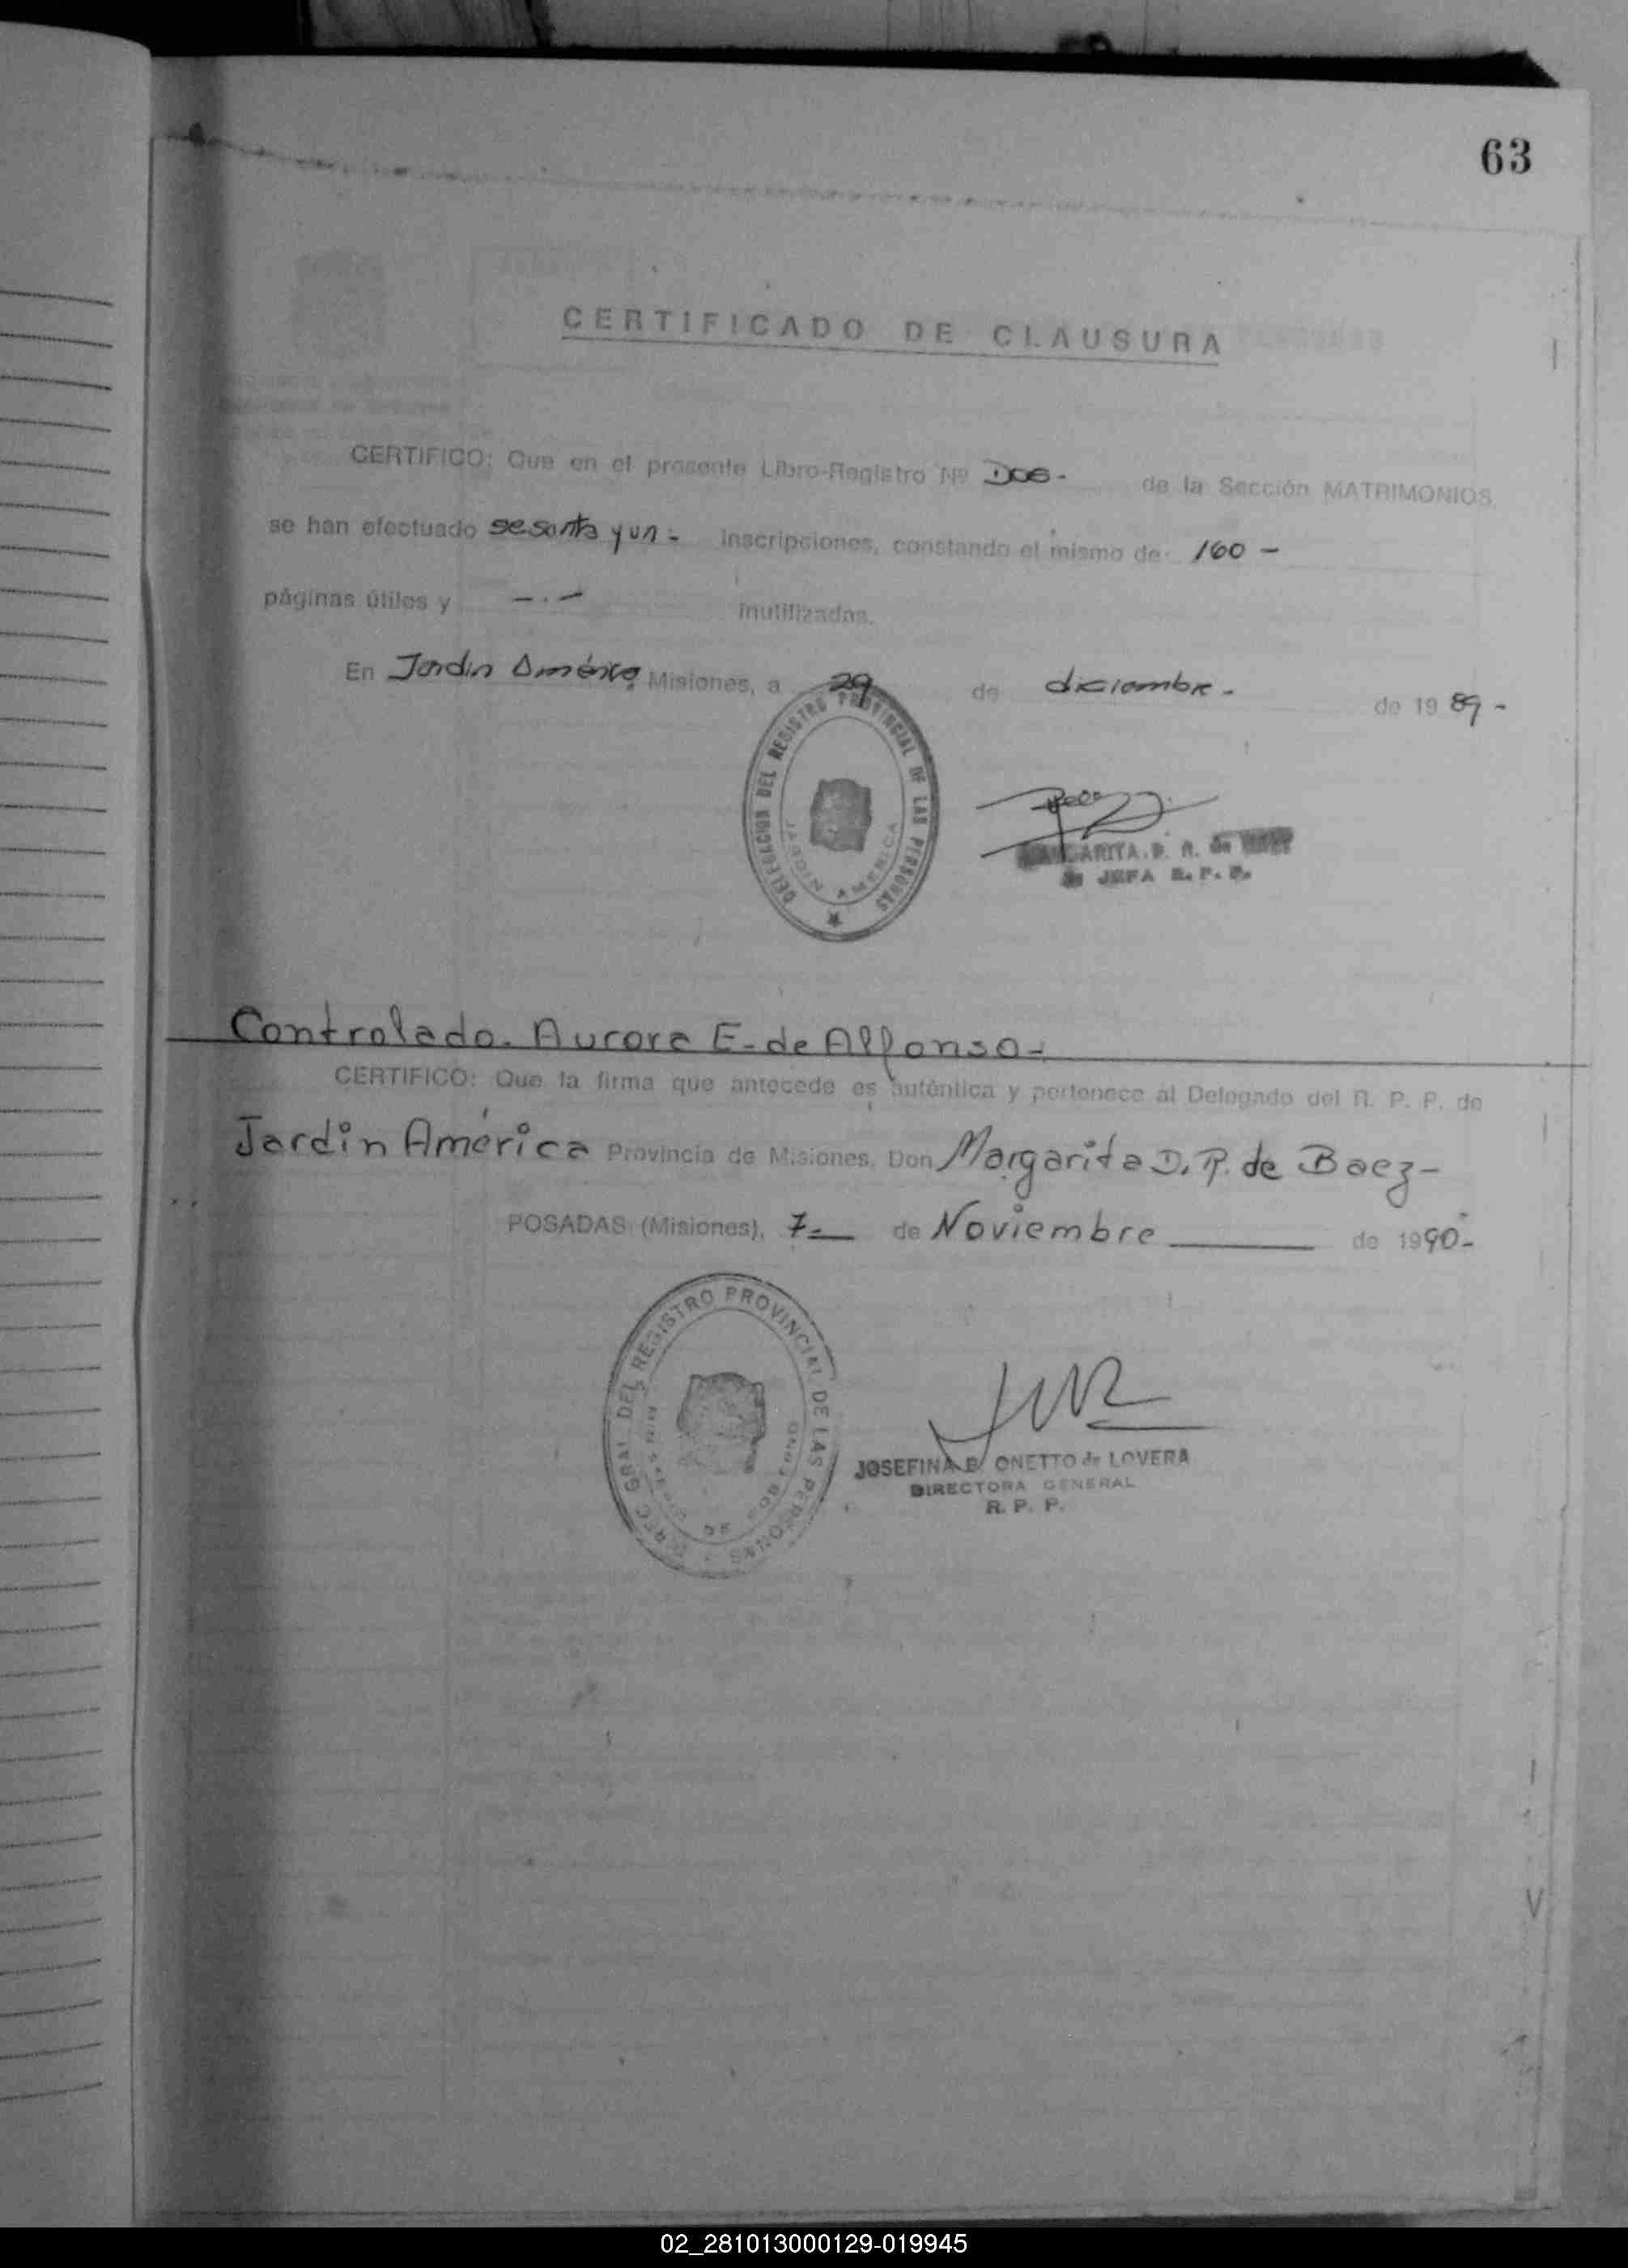 63
CERTIFICADO DE CLAUSURA
CERTIFICO: Que en el presente Libro-Registro Nº Dos- de la Sección MATRIMONIOS,
se han efectuado sesenta y un - inscripciones, constando el mismo de 160 -
páginas útiles y - . - inutilizadas.
En Jardin América Misiones, a 29 de diciembre - de 1989 -
DELEGACION DEL REGISTRO PROVINCIAL DE LAS PERSONAS
JARDIN AMERICA
MARGARITA D. R. de
JEFA R. P. P.
Controlado. Aurora E. de Alfonso-
CERTIFICO: Que la firma que antecede es auténtica y pertenece al Delegado del R. P. P. de
Jardin América Provincia de Misiones, Don Margarita D. R. de Baez-
POSADAS (Misiones), 7- de Noviembre de 1990-
DIREC. GRAL. DEL REGISTRO PROVINCIAL DE LAS PERSONAS
JOSEFINA B. ONETTO de LOVERA
DIRECTORA GENERAL
R. P. P.
02_281013000129-019945